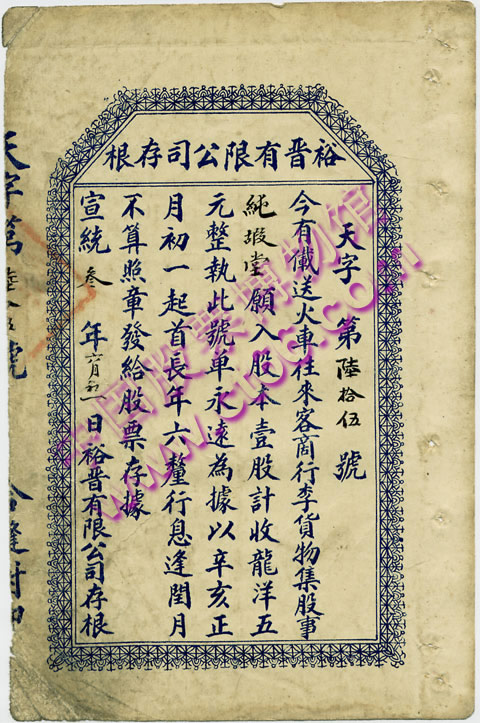 裕晋有限公司存根
天字 第陸拾伍號
今有儎送火車往來客商行李貨物集股事
純嘏堂願入股本壹股計收龍洋五
元整執此號单永遠為據以辛亥正
月初一起首長年六釐行息逢閏月
不算照章發給股票存據
宣統叁年 日裕晋有限公司存根
天字第陸拾伍號
中国股票博物馆